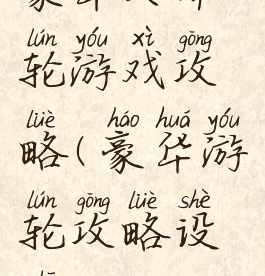 lún yóu xì gōng
轮游戏攻
lüè háo huá yóu
略(豪华游
lún gōng lüè shè
轮攻略设